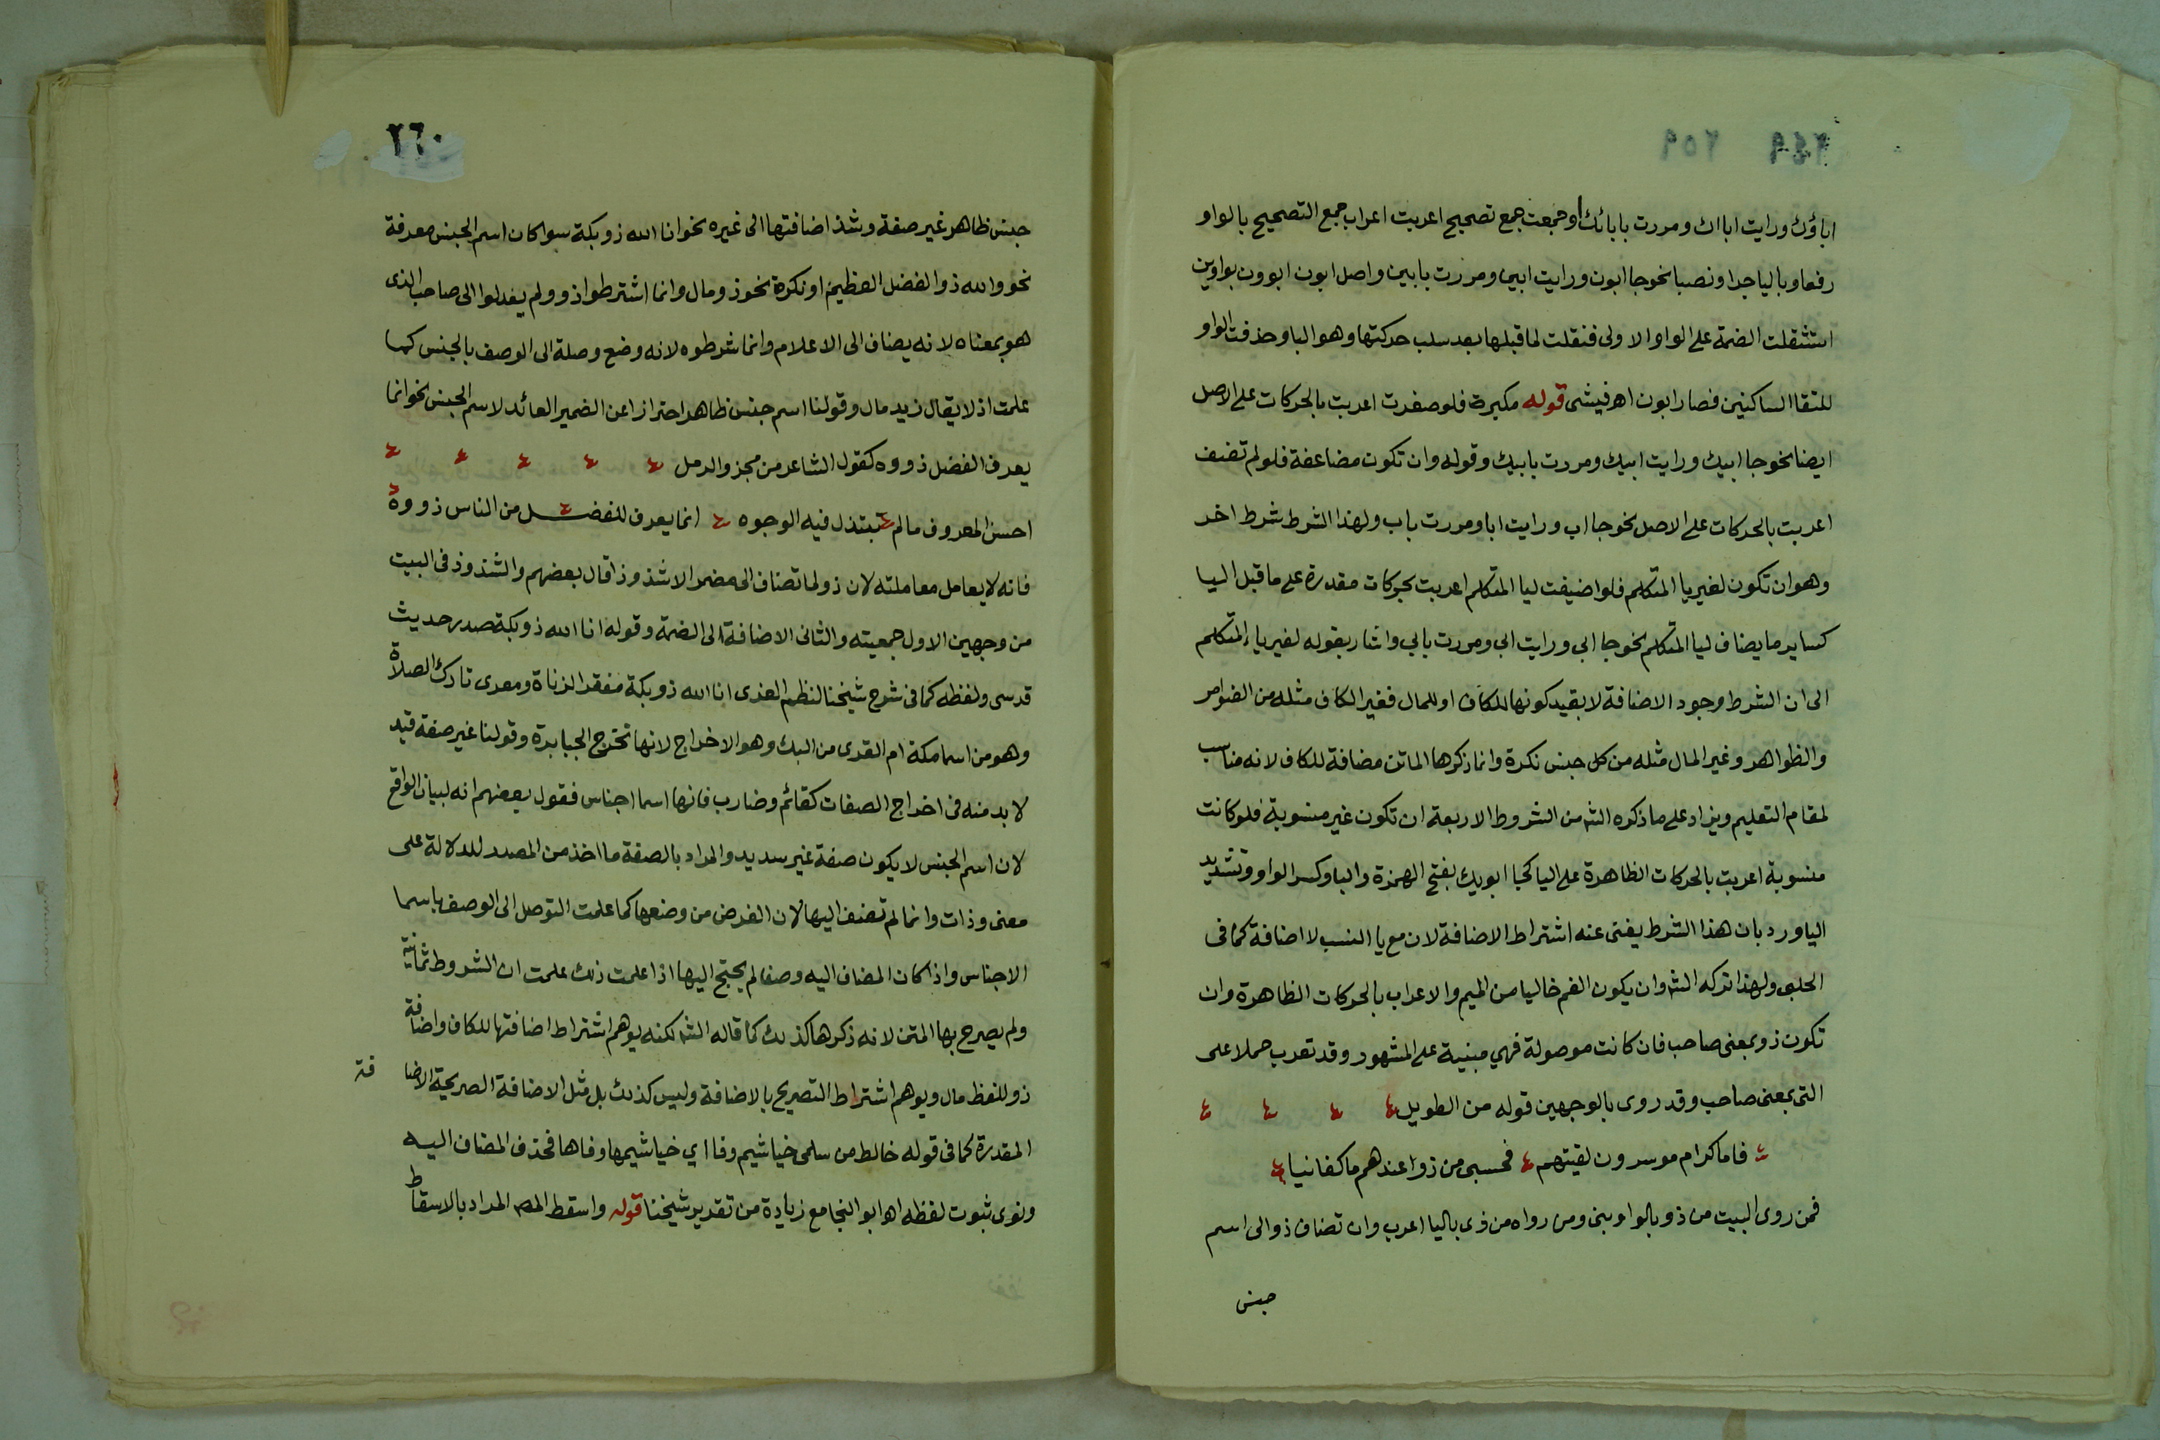 اباؤك ورايت اباءك ومررت بابائك او جمعت جمع تصحيح اعربت اعراب جمع التصحيح بالواو
رفعا وباليا جرا ونصبا نحو جا ابون ورايت ابين ومررت بابين واصل ابون ابوون بواوين
استثقلت الضمة على الواو الاولى فنقلت لما قبلها بعد سلب حركتها وهو البا وحذفت الواو
للتقا الساكنين فصار ابون اهر فيشى قوله مكبرة فلو صغرت اعربت بالحركات على الاصل
ايضا نحو جا ابيك ورايت ابيك ومررت بابيك وقوله وان تكون مضاعفة فلو لم تضف
اعربت بالحركات على الاصل نحو جا اب ورايت ابا ومررت باب ولهذا الشرط شرط اخر
وهو ان تكون لغير يا المتكلم فلو اضيفت ليا المتكلم اعربت بحركات مقدرة على ما قبل اليا
كساير ما يضاف ليا المتكلم نحو جا ابى ورايت ابى ومررت بابي واشار بقوله لغير يا المتكلم
الى ان الشرط وجود الاضافة لا بقيد كونها للكاف او للمال فغير الكاف مثله من الضواهر
والظواهر وغير المال مثله من كل جنس نكرة وانما ذكرها الماتن مضافة للكاف لانه مناسب
لمقام التعليم ويزاد على ما ذكره الش من الشروط الاربعة ان تكون غير منسوبة فلو كانت
منسوبة اعربت بالحركات الظاهرة على اليا كجا ابويك بفتح الهمزة والبا وكسر الواو وتشديد
اليا ورد بان هذا الشرط يغنى عنه اشتراط الاضافة لان مع يا النسب لا اضافة كما فى
الحلبى ولهذا تركه الش وان يكون الفم خاليا من الميم والا عرب بالحركات الظاهرة وان
تكون ذو بمعنى صاحب فان كانت موصولة فهي مبنية على المشهور وقد تعرب حملا على
التى بمعنى صاحب وقد روى بالوجهين قوله من الطويل
فاما كرام موسرون لقيتهم فحسبى من ذوا عندهم ما كفانيا
فمن روى البيت من ذو بالواو بنى ومن رواه من ذى باليا اعرب وان تضاف ذو الى اسم
جنس
٢٦٠
جنس ظاهر غير صفة وشذ اضافتها الى غيره نحو انا الله ذو بكة سوا كان اسم الجنس معرفة
نحو والله ذو الفضل العظيم او نكرة نحو ذو مال وانما اشترطوا ذو ولم يعدلوا الى صاحب الذى
هو بمعناه لانه يضاف الى الاعلام وانما شرطوه لانه وضع وصلة الى الوصف بالجنس كما
علمت اذ لا يقال زيد مال وقولنا اسم جنس ظاهر احترازا عن الضمير العائد لاسم الجنس نحو انما
يعرف الفضل ذووه كقول الشاعر من مجزو الرمل
احسن المعروف ما لم تبتذل فيه الوجوه انما يعرف للفضل من الناس ذووه
فانه لا يعامل معاملته لان ذو لما تضاف الى مضمر الا شذوذا قال بعضهم والشذوذ فى البيت
من وجهين الاول جمعيته والثانى الاضافة الى الضمة وقوله انا الله ذو بكة صدر حديث
قدسى ولفظه كما فى شرح شيخنا لنظم العذى انا الله ذو بكة مفقر الزناة ومعرى تارك الصلاة
وهو من اسما مكة ام القرى من البك وهو الاخراج لانها تخرج الجبابرة وقولنا غير صفة قيد
لا بد منه فى اخراج الصفات كقائم وضارب فانها اسما اجناس فقول بعضهم انه لبيان الواقع
لان اسم الجنس لا يكون صفة غير سديد والمراد بالصفة ما اخذ من المصدر للدلالة على
معنى وذات وانما لم تضف اليها لان الغرض من وضعها كما علمت التوصل الى الوصف باسما
الاجناس واذا كان المضاف اليه وصفا لم يحتج اليها اذا علمت ذلك علمت ان الشروط ثمانية
ولم يصرح بها المتن لانه ذكرها كذلك كما قاله الش لكنه يوهم اشتراط اضافتها للكاف واضافة
ذو للفظ مال ويوهم اشتراط التصريح بالاضافة وليس كذلك بل مثل الاضافة الصريحة الاضا فة
المقدرة كما فى قوله خالط من سلمى خياشيم وفا اي خياشيمها وفاها فحذف المضاف اليه
ونوى ثبوت لفظه اهر ابو النجا مع زيادة من تقدير شيخنا قوله واسقط المص المراد بالاسقاط